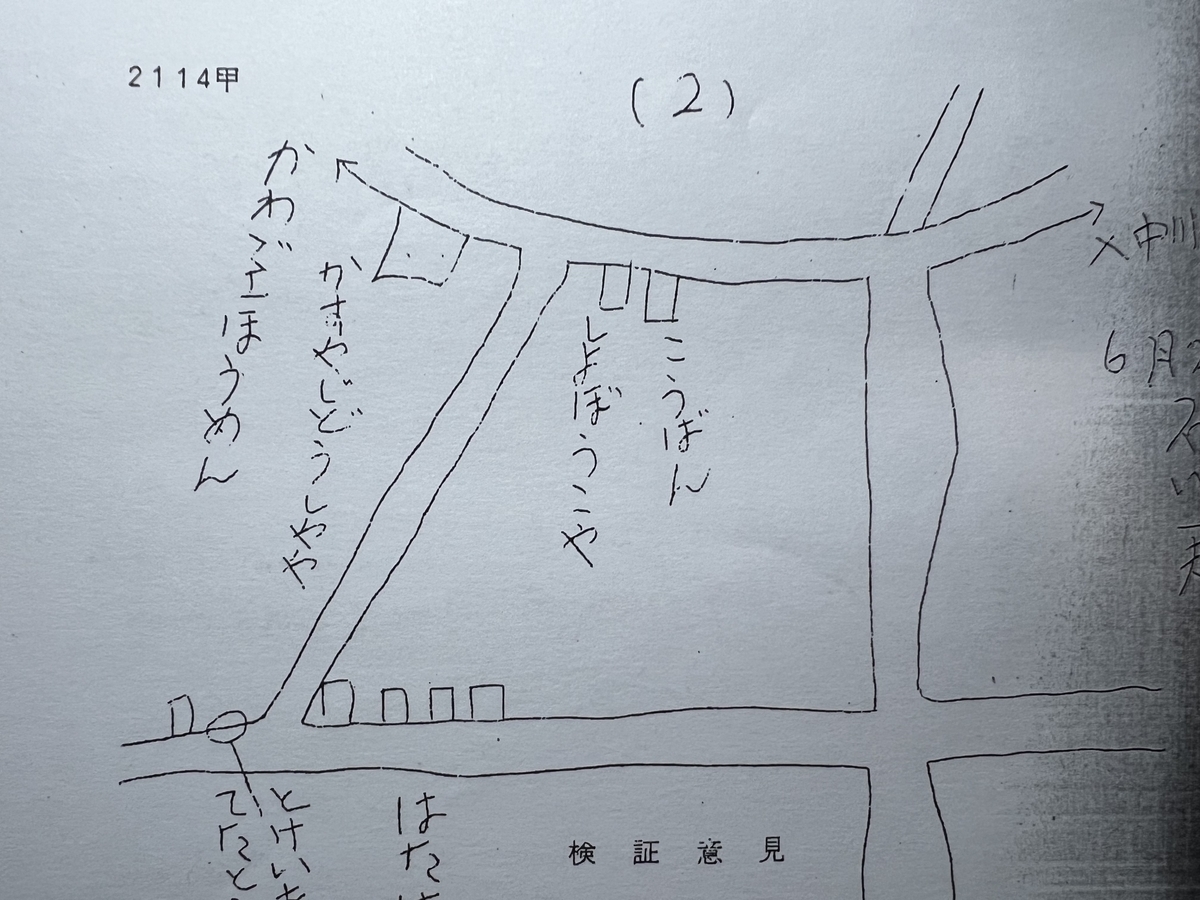 2114甲
(2)
×中川
6月
こうばん
しよぼうこや
かすやじどうしやや
かわごえほうめん
はた
とけい
てたと
検証意見